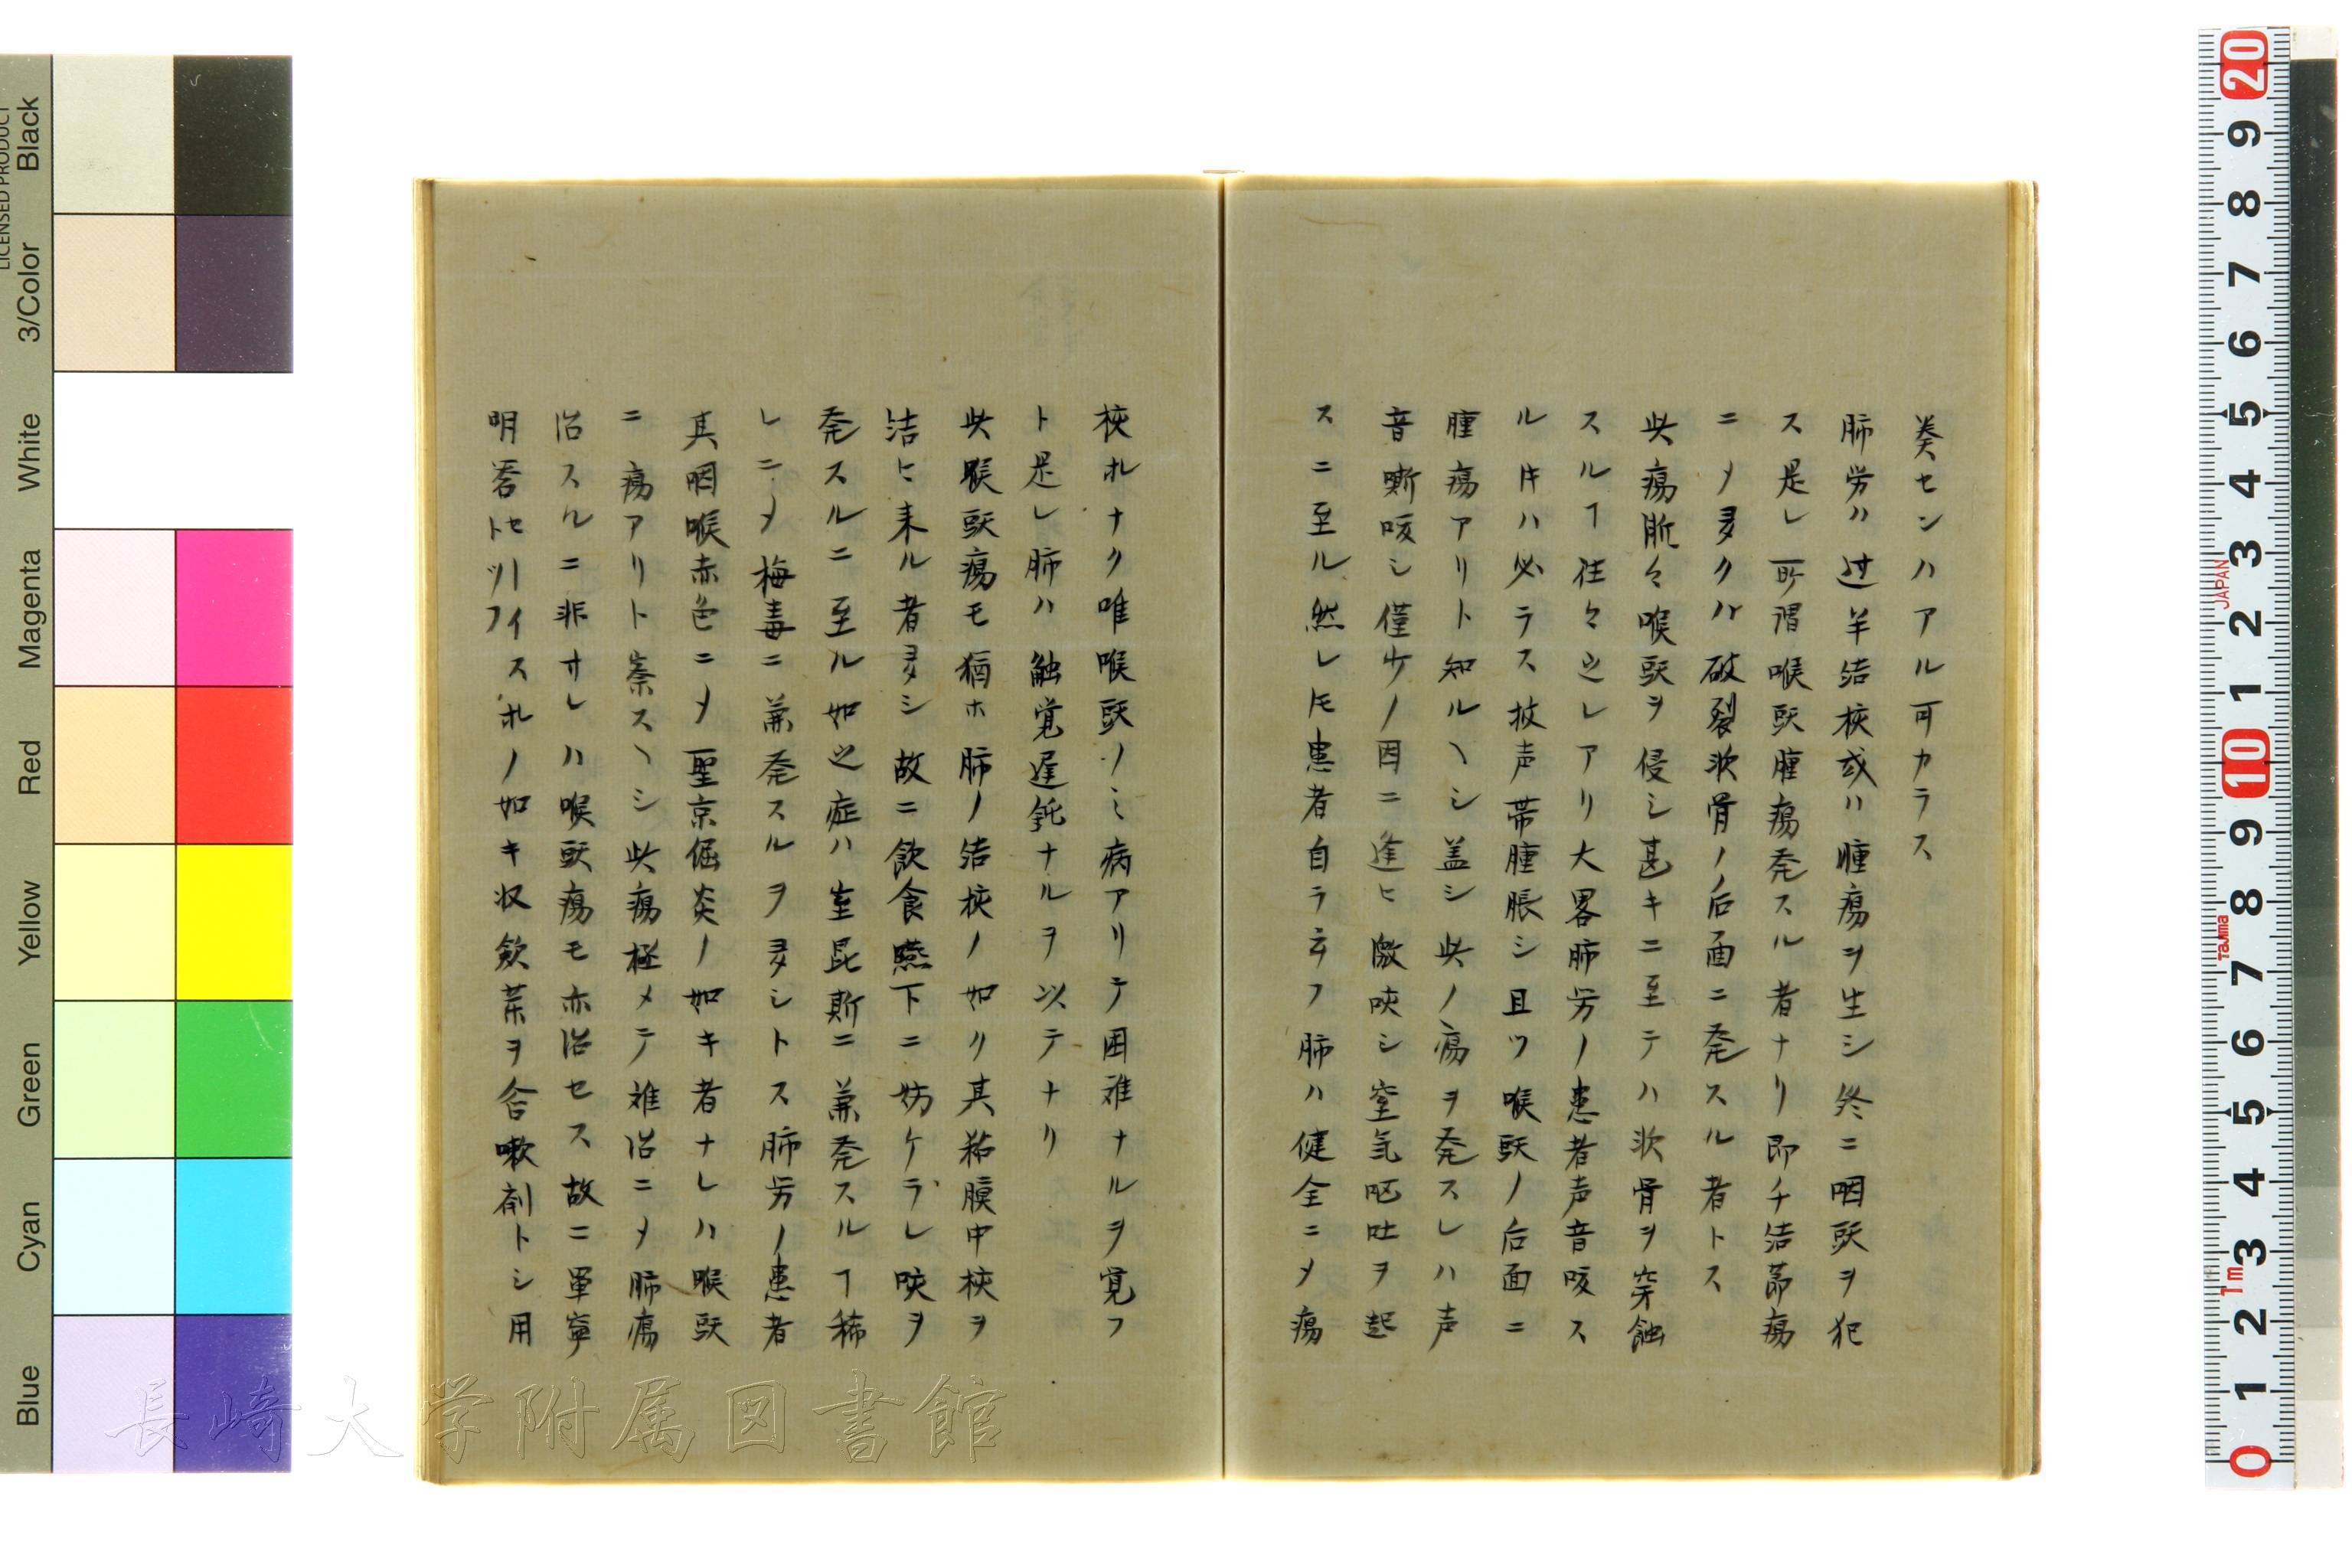 炎センハアル可カラス
肺労ハ过半結核或ハ腫瘍ヲ生シ終ニ咽頭ヲ犯
ス是レ所謂喉頭腫瘍発スル者ナリ即チ結節瘍
ニメ多クハ破裂軟骨ノ后面ニ発スル者トス
此瘍漸々喉頭ヲ侵シ甚キニ至テハ軟骨ヲ穿蝕
スルヿ往々之レアリ大畧肺労ノ患者声音嗄ス
ルキハ必ラス披声帯腫脹シ且ツ喉頭ノ后面ニ
腫瘍アリト知ルヘシ盖シ此ノ瘍ヲ発スレハ声
音嘶嗄シ僅少ノ因ニ逢ヒ激咳シ窒気呕吐ヲ起
スニ至ル然レ𪜈患者自ラ云フ肺ハ健全ニメ瘍
核ホナク唯喉頭ノミ病アリテ困难ナルヲ覚フ
ト是レ肺ハ触覚遅鈍ナルヲ以テナリ
此喉頭瘍モ猶ホ肺ノ結核ノ如ク其粘膜中核ヲ
結ヒ来ル者多シ故ニ飲食嚥下ニ妨ケラレ咳ヲ
発スルニ至ル如之症ハ窒昆斯ニ兼発スルヿ稀
レニメ梅毒ニ兼発スルヲ多シトス肺労ノ患者
其咽喉赤色ニメ聖京倔炎ノ如キ者ナレハ喉頭
ニ瘍アリト察スヘシ此瘍極メテ难治ニメ肺瘍
治スルニ非サレハ喉頭瘍モ亦治セス故ニ単寧
明礬トセーイスホノ如キ収歛薬ヲ含嗽剤トシ用
ツリフ
LICENSED PRODUCT
Black
3/Color
White
Magenta
Red
Yellow
Green
Cyan
Blue
長崎大学附属図書館
20 9 8 7 6 5 4 3 2 1 10 9 8 7 6 5 4 3 2 1 0
JAPAN
Tajima
1m